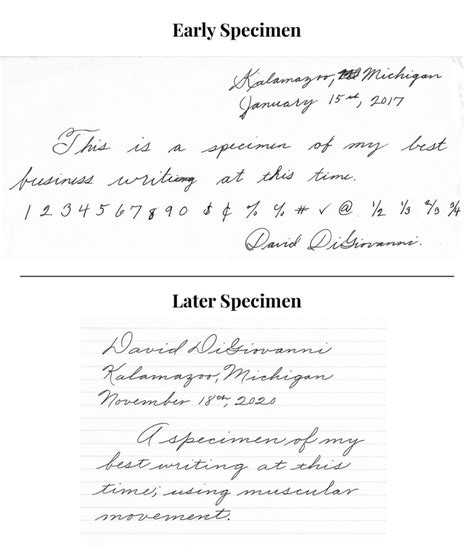 Early Specimen
Kalamazoo, Michigan
January 15th, 2017
This is a specimen of my best
business writing at this time.
1 2 3 4 5 6 7 8 9 0 $ ¢ % # ✓ @ 1/2 1/3 2/3 3/4
David DiGiovanni.
Later Specimen
David DiGiovanni
Kalamazoo, Michigan
November 18th, 2020
A specimen of my
best writing at this
time; using muscular
movement.